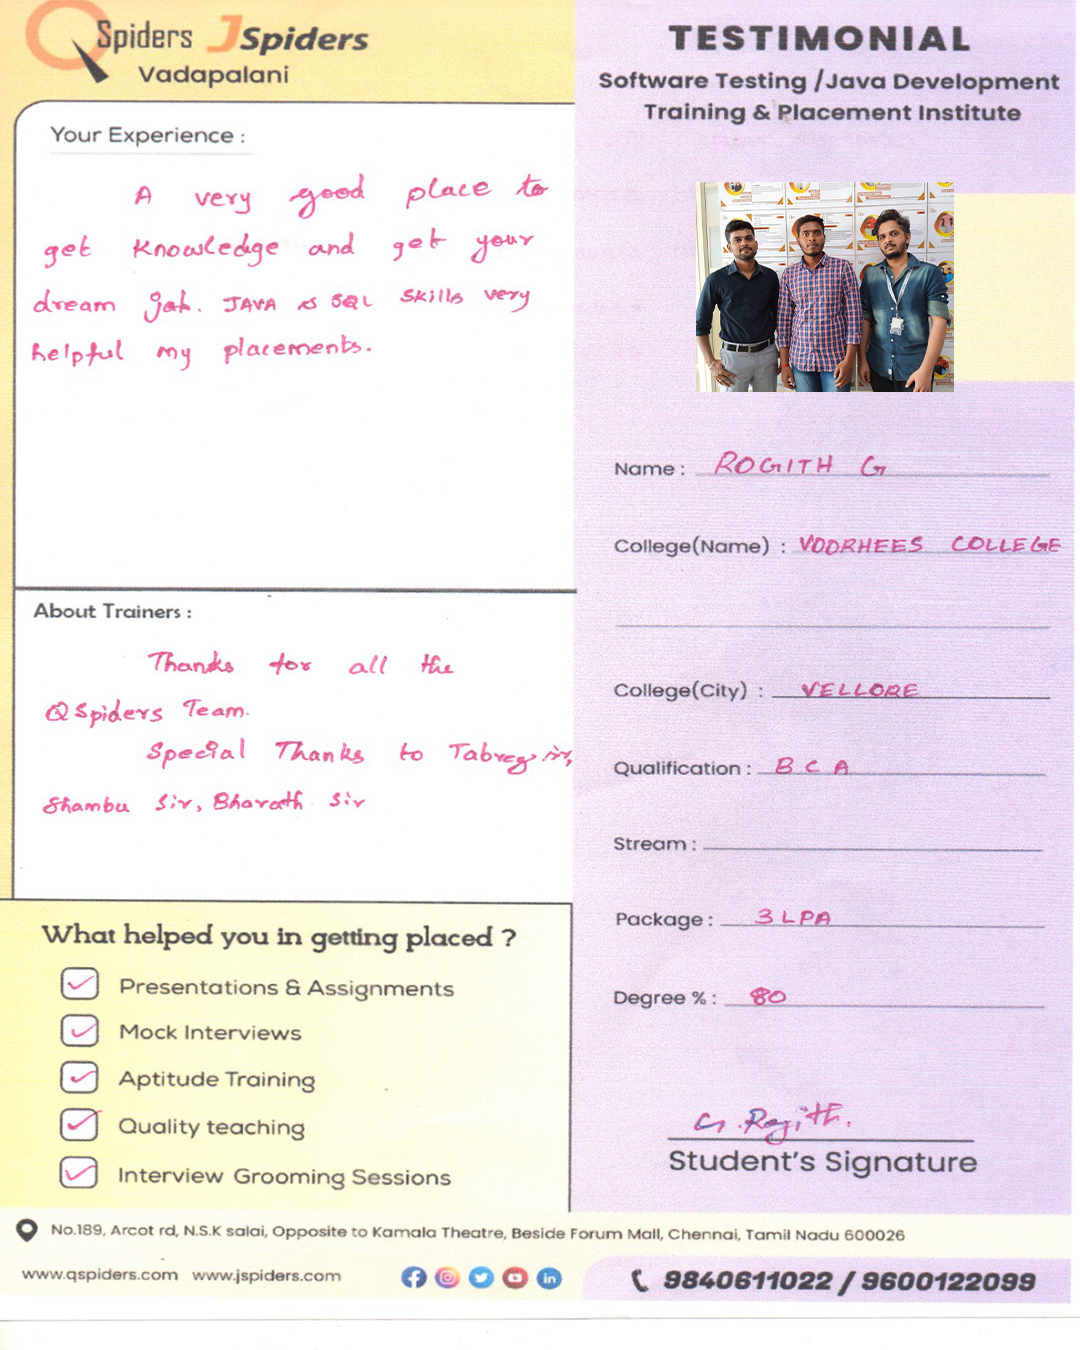 QSpiders JSpiders
Vadapalani
TESTIMONIAL
Software Testing /Java Development
Training & Placement Institute
Your Experience :
A very good place to
get Knowledge and get your
dream job. JAVA & SQL skills very
helpful my placements.
About Trainers :
Thanks for all the
QSpiders Team.
Special Thanks to Tabrez sir,
Shambu Sir, Bharath Sir
What helped you in getting placed ?
Presentations & Assignments
Mock Interviews
Aptitude Training
Quality teaching
Interview Grooming Sessions
Name : ROGITH G
College(Name) : VOORHEES COLLEGE
College(City) : VELLORE
Qualification : BCA
Stream :
Package : 3 LPA
Degree % : 80
G. Rogith.
Student's Signature
No.189, Arcot rd, N.S.K salai, Opposite to Kamala Theatre, Beside Forum Mall, Chennai, Tamil Nadu 600026
www.qspiders.com www.jspiders.com
9840611022 / 9600122099